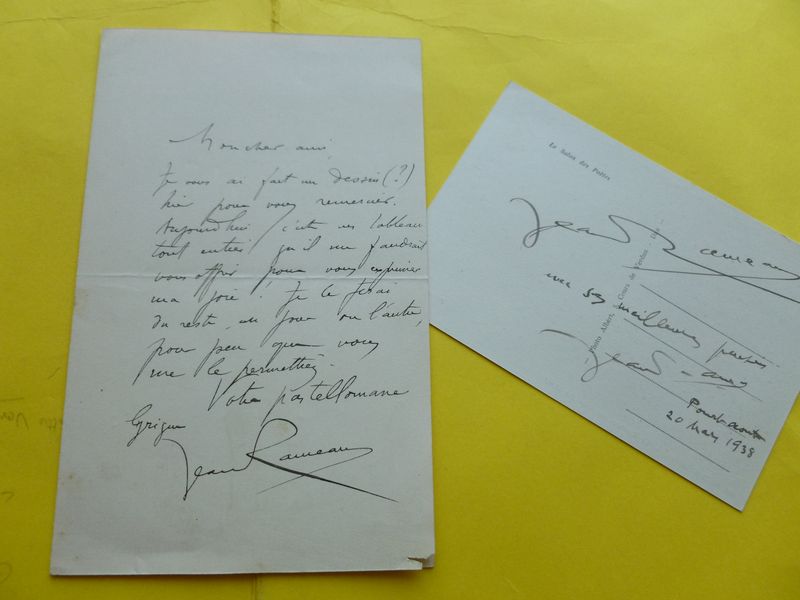 Mon cher ami,
Je vous ai fait un dessin (?)
hier pour vous remercier.
Aujourd'hui c'est un tableau
tout entier qu'il me faudrait
vous offrir pour vous exprimer
ma joie! Je le ferai
du reste, un jour ou l'autre,
pour peu que vous
me le permettiez.
Votre pastellomane
Jean Rameau
Le Salon des Poètes
Jean Rameau
ses meilleures
Jean
20 Mars 1938
Photo Albert, Cours de Verdun